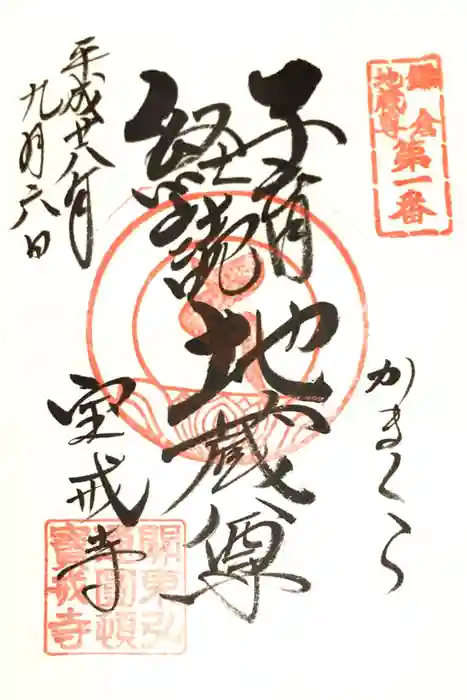 鎌倉
地蔵尊
第一番
かまくら
子育
経読
地蔵尊
平成廿八年
九月六日
宝戒寺
關東弘
律圓頓
寶戒寺